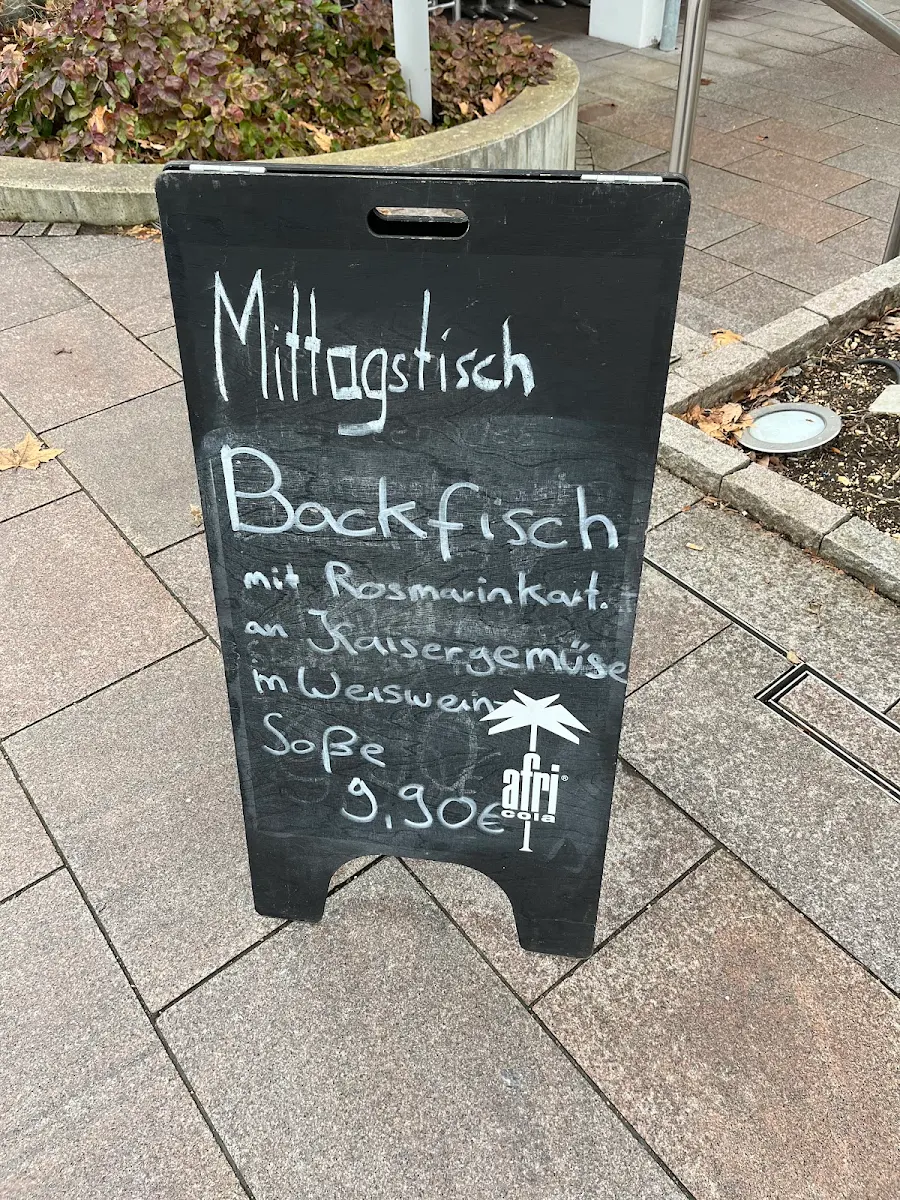 Mittagstisch
Backfisch
mit Rosmarinkart.
an Kaisergemüse
in Weiswein-
Soße
9,90€
afri®
cola